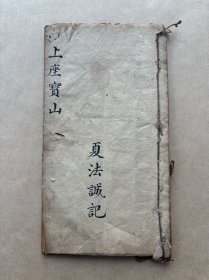 上座寶山
夏法誠記